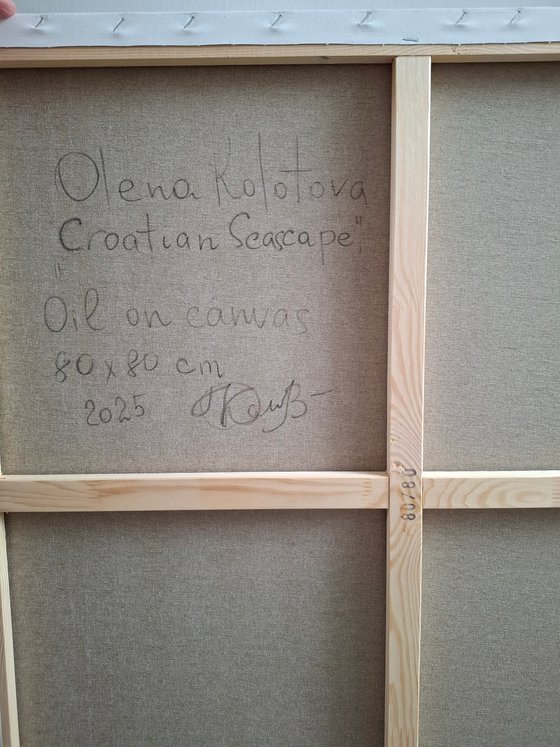 Olena Kolotova
"Croatian Seascape"
Oil on canvas
80x80 cm
2025
80/80